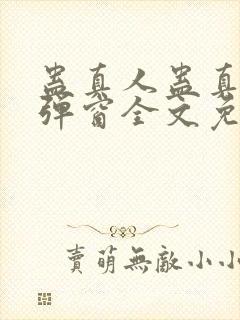 蛊真人蛊真
弹窗全文免
賣萌無敵小小